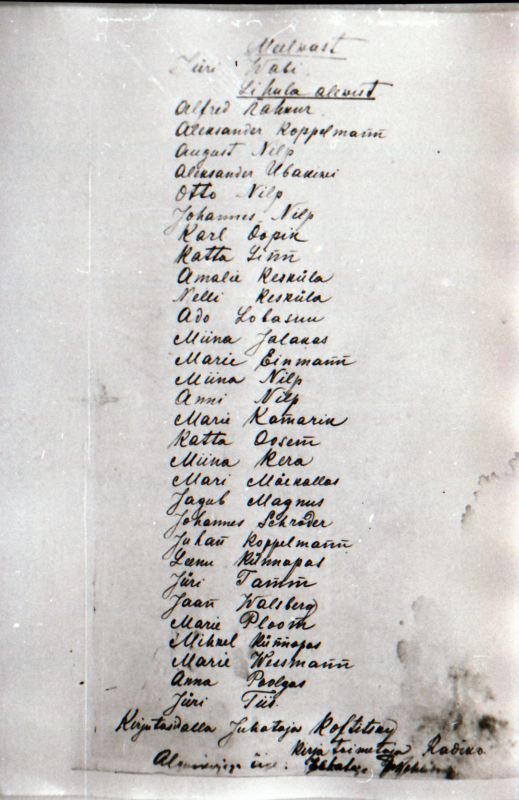 Meelwast
Jüri Wabi
Lihula alewist
Alfred Rahnur
Aleksander Koppelmann̄
August Nilp
Aleksander Ubakiwi
Otto Nilp
Johannes Nilp
Karl Ööpik
Katta Linn̄
Amalie Kesküla
Nelli Kesküla
Ado Lobasuu
Miina Jalakas
Marie Einmann̄
Miina Nilp
Anni Nilp
Marie Kamarik
Katta Oosem
Miina Kera
Mari Mäekallas
Jagub Magnus
Johannes Schröder
Juhan Koppelmann̄
Leenu Künnapas
Jüri Tamm
Jaan Walsberg
Marie Ploom
Mihkel Künnapas
Marie Wessmann̄
Anna Poolgas
Jüri Tiis
Juhataja
Kirja toimetaja